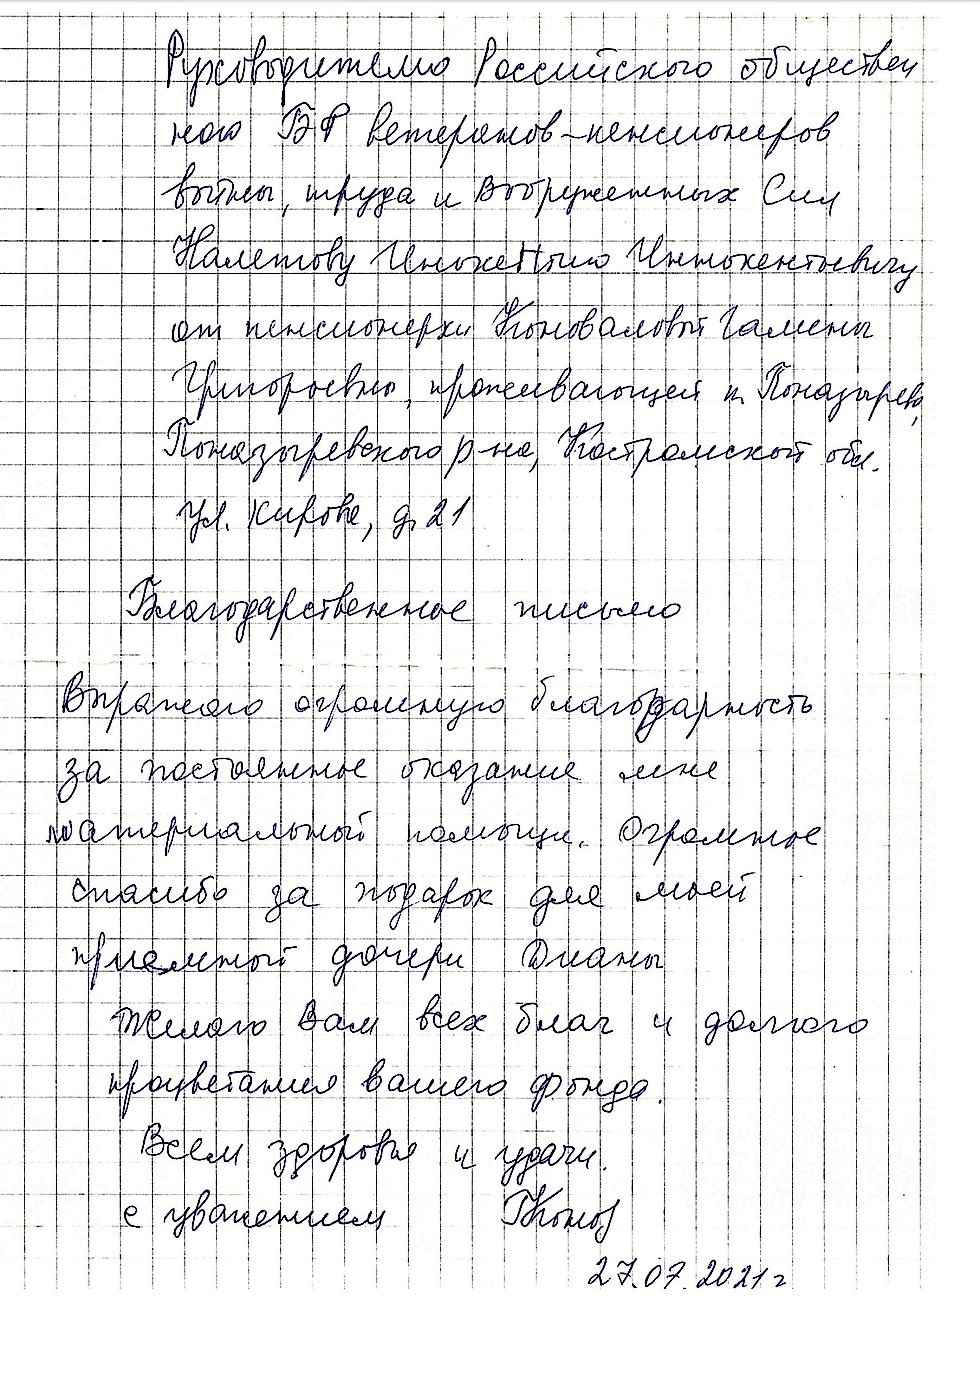 Руководителю Российского обществен
ного БФ ветеранов-пенсионеров
войны, труда и Вооруженных Сил
Налетову Инокентию Иннокентьевичу
от пенсионерки Коноваловой Галины
Григорьевны, проживающей п. Поназырево,
Поназыревского р-на, Костромской обл.
ул. Кирова, д. 21
Благодарственное письмо
Выражаю огромную благодарность
за постоянное оказание мне
материальной помощи. Огромное
спасибо за подарок для моей
приемной дочери Дианы
Желаю Вам всех благ и долгого
процветания вашего фонда.
Всем здоровья и удачи.
с уважением ГКонов
27.07.2021 г